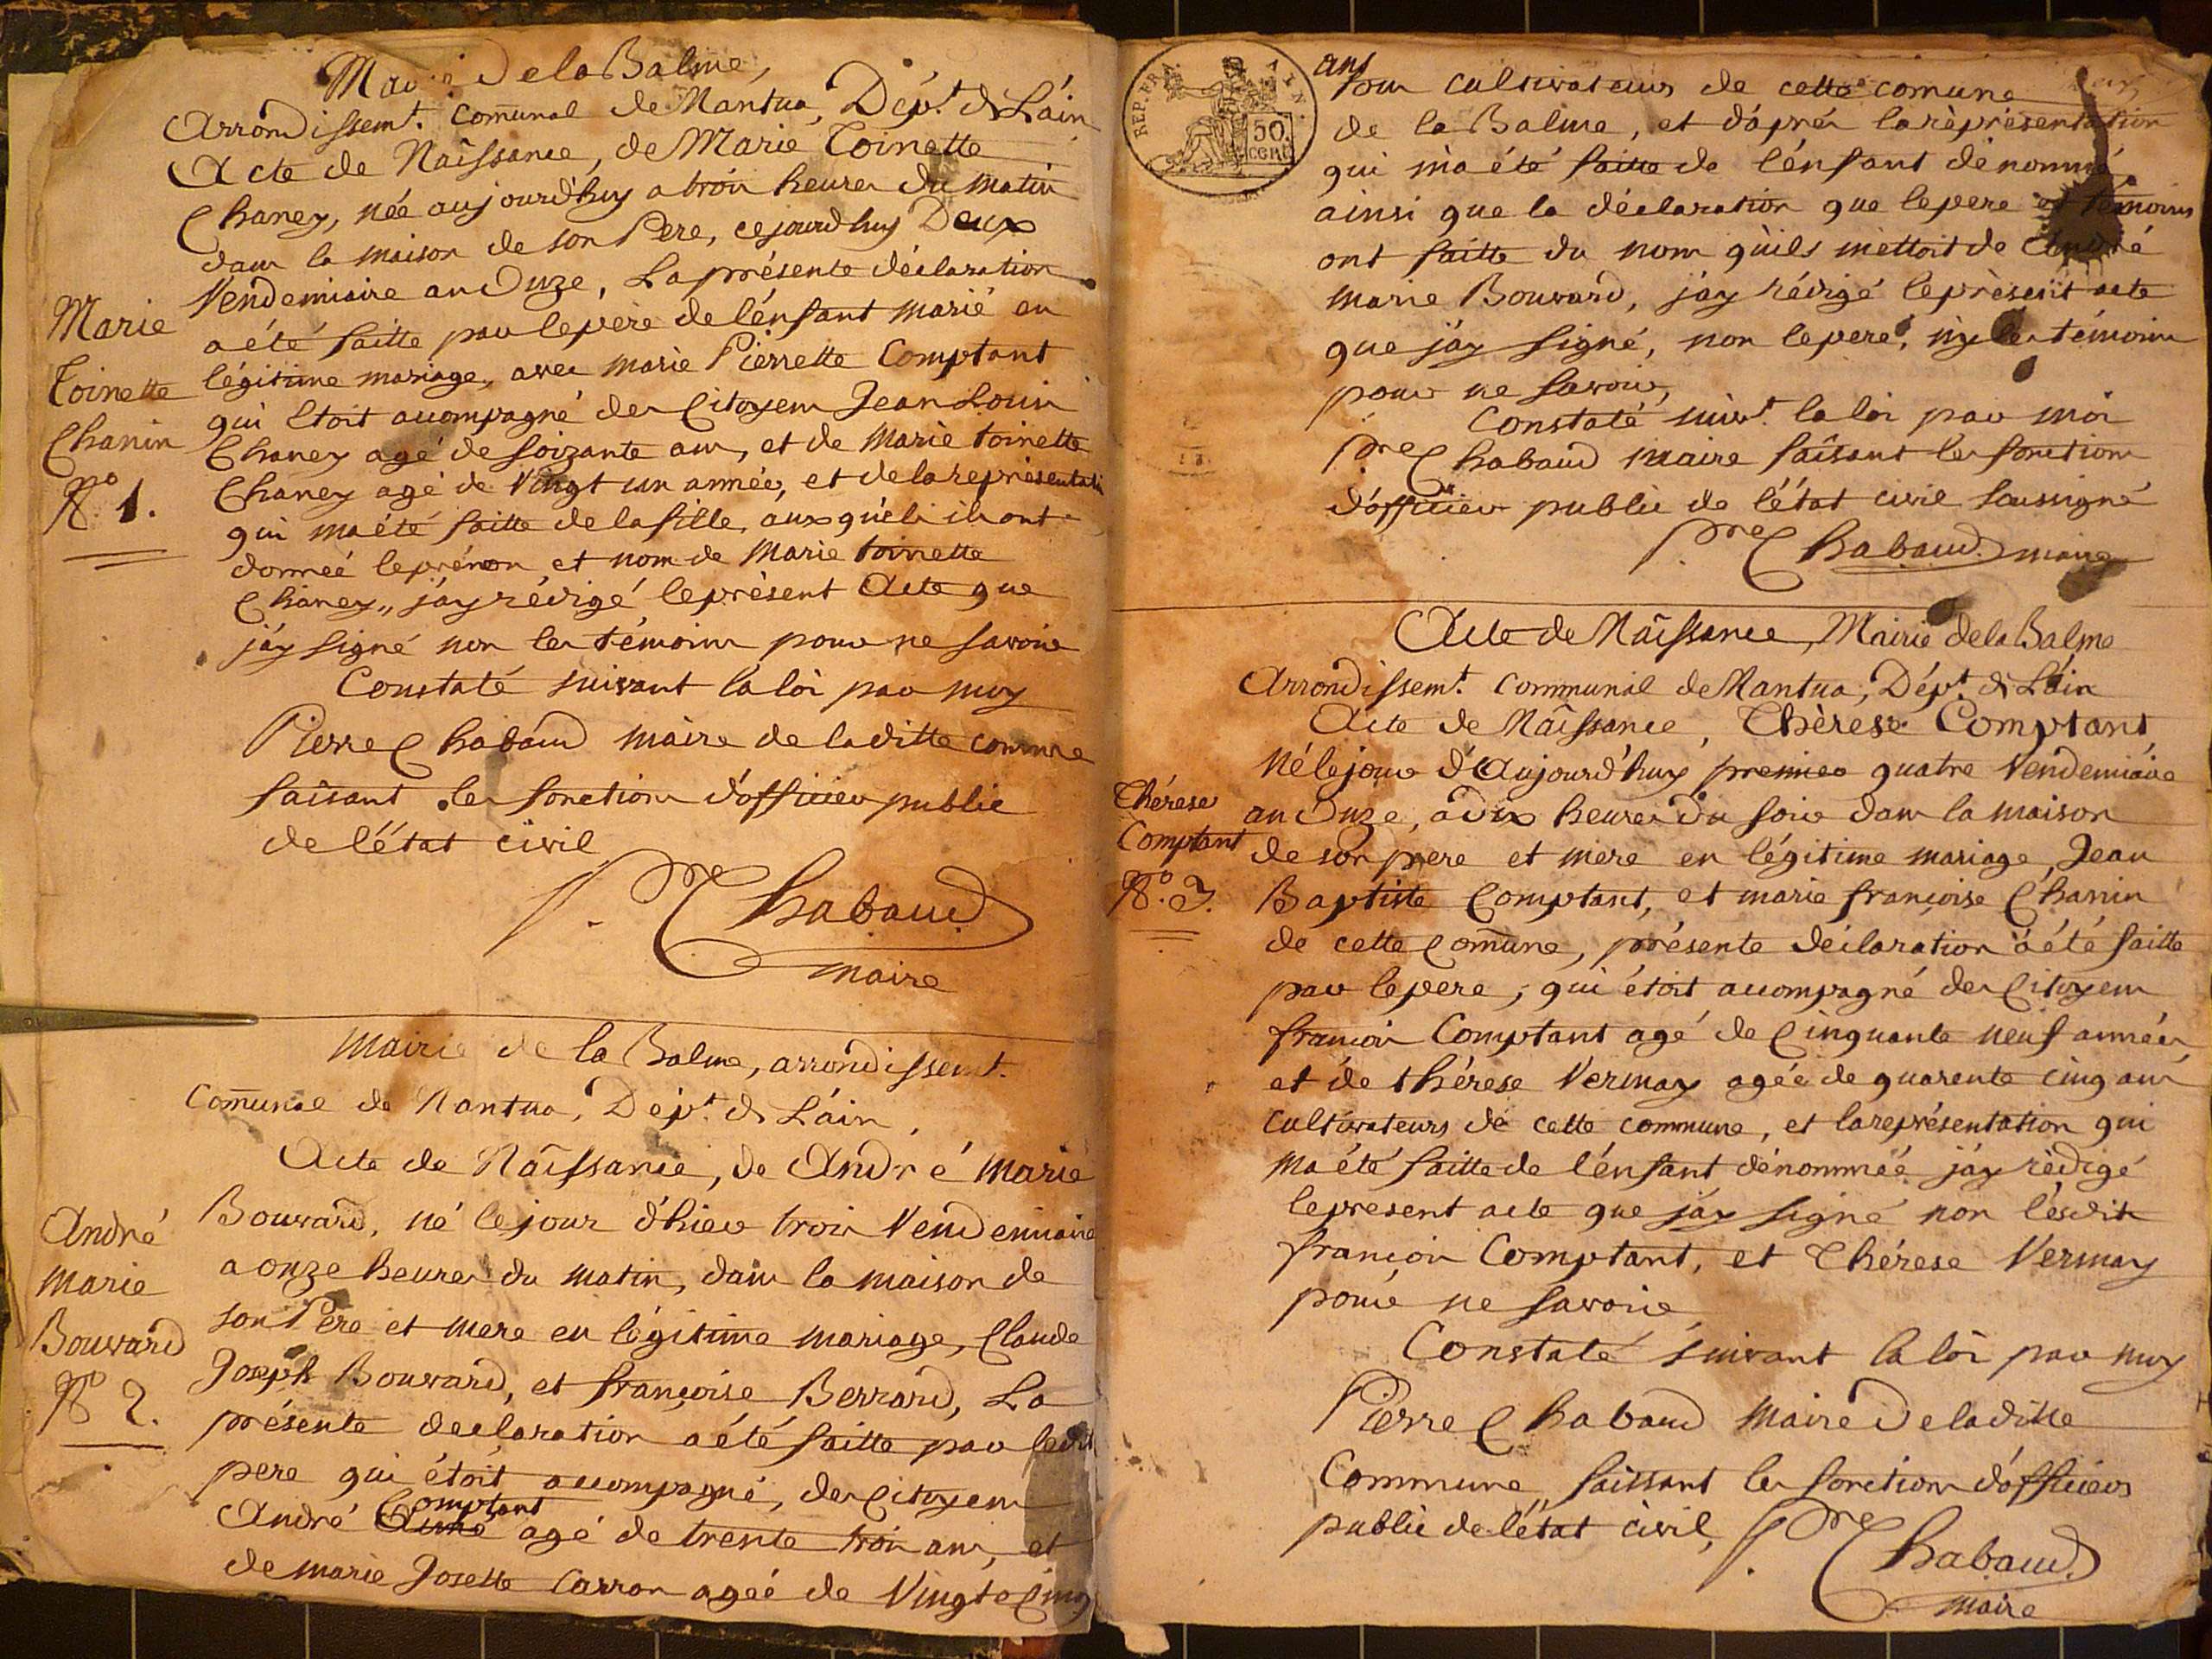 Mairie De la Balme,
Arrondissemt. comunal de Nantua, Dépt. de L'áin
Acte de Naissance, de Marie Toinette
Chaney, née aujourd'huy a trois heures du matin
dans la maison de son Pere, cejourd'huy Deux
Vendemiaire an Onze, La présente déclaration
a été faitte par le père de l'énfant marié en
légitime mariage, avec marie Pierrette Comptant
qui Etoit accompagné des Citoyens Jean Louis
Chaney agé de soizante ans, et de Marie toinette
Chaney agé de Vingt un année, et de la représentati
qui ma été faitte de la fille, aux quels ils ont
donneé le prénom et nom de Marie toinette
Chaney,, j'ay rédigé le présent Acte que
j'áy signé non les témoins pour ne savoir
Constaté suivant la loi par moy
Pierre Chabaud maire de la ditte comune
faisant les fonctions d'officier public
de l'état civil
P.re Chabaud
maire
Marie
Toinette
Chanin
No. 1.
Mairie de la Balme, arrondissemt.
Comunal de Nantua, Dépt. de L'áin,
Acte de Naissance, de André Marie
Bouvard, né le jour d'hier trois Vendemiaire
a onze heures du matin, dans la maison de
son Pere et mere en légitime mariage, Claude
Joseph Bouvard, et françoise Berrard, La
présente declaration a été faitte par ledit
pere qui étoit accompagné, des Citoyens
Comptant
André agé de trente trois ans, et
de marie Josette Carron ageé de Vingt Cinq
André
Marie
Bouvard
No 2.
REP. FRA. AIN.
50.
CENT
ans
Tous cultivateurs de cette comune
de la Balme, et d'áprés la réprésentation
qui m'a été faitte de l'énfant dénommé,
ainsi que la déclaration que le pere et témoins
ont faitte du nom qu'ils mettoit de André
Marie Bouvard, j'áy rédigé le présent acte
que j'áy signé, non le pere, ny les témoins
pour ne savoir,
Constaté suivt. la loi par moi
Pre Chabaud maire faisant les fonctions
d'officier public de l'état civil soussigné
P.re Chabaud maire
Acte de Naissance, Mairie de la Balme
Arrondissemt. communal de Nantua, Dépt. de L'áin
Acte de Naissance, Thèrese Comptant
Né le jour d'Aujourd'huy premier quatre Vendemiaire
an Onze, a dix heures du soir dans la maison
de son pere et mere en légitime mariage, Jean
Baptiste Comptant, et marie françoise Chanin
de cette Comune, présente déclaration a été faitte
par le pere, qui étoit accompagné des Citoyens
françois Comptant agé de Cinquante neuf années,
et de thérese Vermay agée de quarente cinq ans
Cultivateurs de cette commune, et la représentation qui
ma été faitte de l'énfant dénommeé j'áy rédigé
le present acte que j'áy signé non lésdits
françois Comptant, et Thérese Vermay
pour ne savoir
Constaté suivant la loi par moy
Pierre Chabaud Maire De la ditte
Commune, faissant les fonctions d'officier
public de l'état civil, P.re Chabaud
maire
Thérese
Comptant
No. 3.